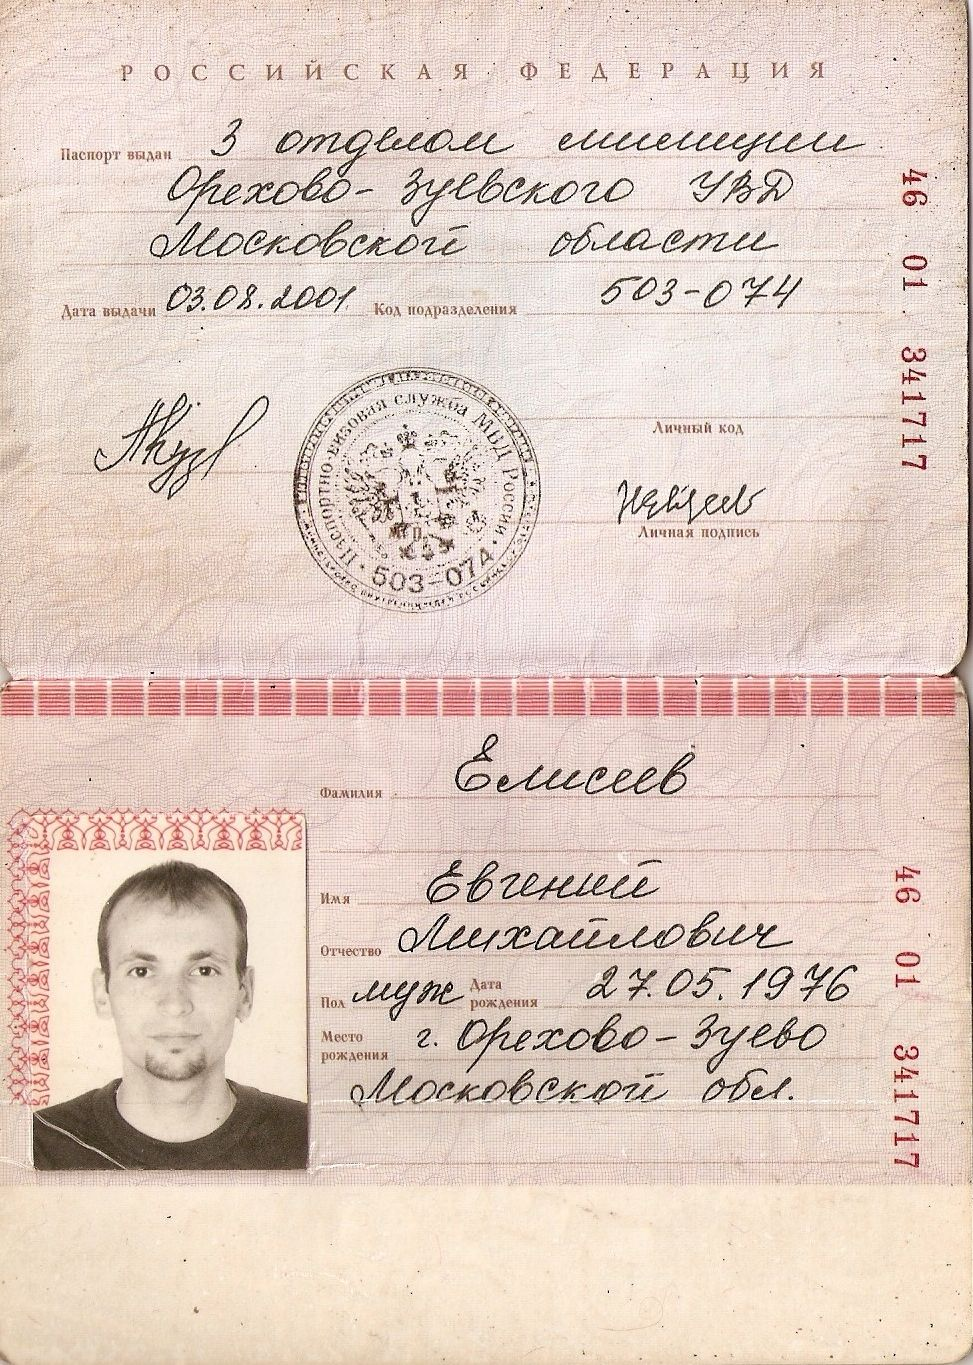 РОССИЙСКАЯ ФЕДЕРАЦИЯ
Паспорт выдан 3 отделом милиции
Орехово-Зуевского УВД
Московской области
Дата выдачи 03.08.2001 Код подразделения 503-074
46 01 341717
Паспортно-визовая служба МВД России
М.П.
503-074
Личный код
Личная подпись
Фамилия Елисеев
Имя Евгений
Отчество Михайлович
Пол муж Дата рождения 27.05.1976
Место рождения г. Орехово-Зуево
Московской обл.
46 01 341717